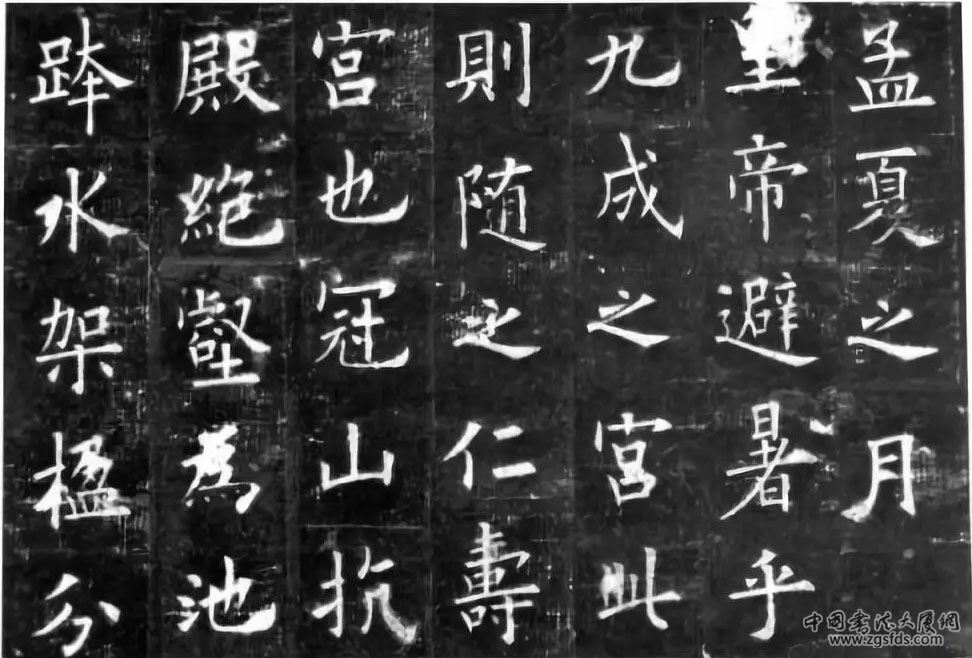 孟夏之月
皇帝避暑乎
九成之宫此
則随之仁壽
宫也冠山抗
殿絶壑為池
跨水架楹分
中国书法大展網
www.zgsfds.com